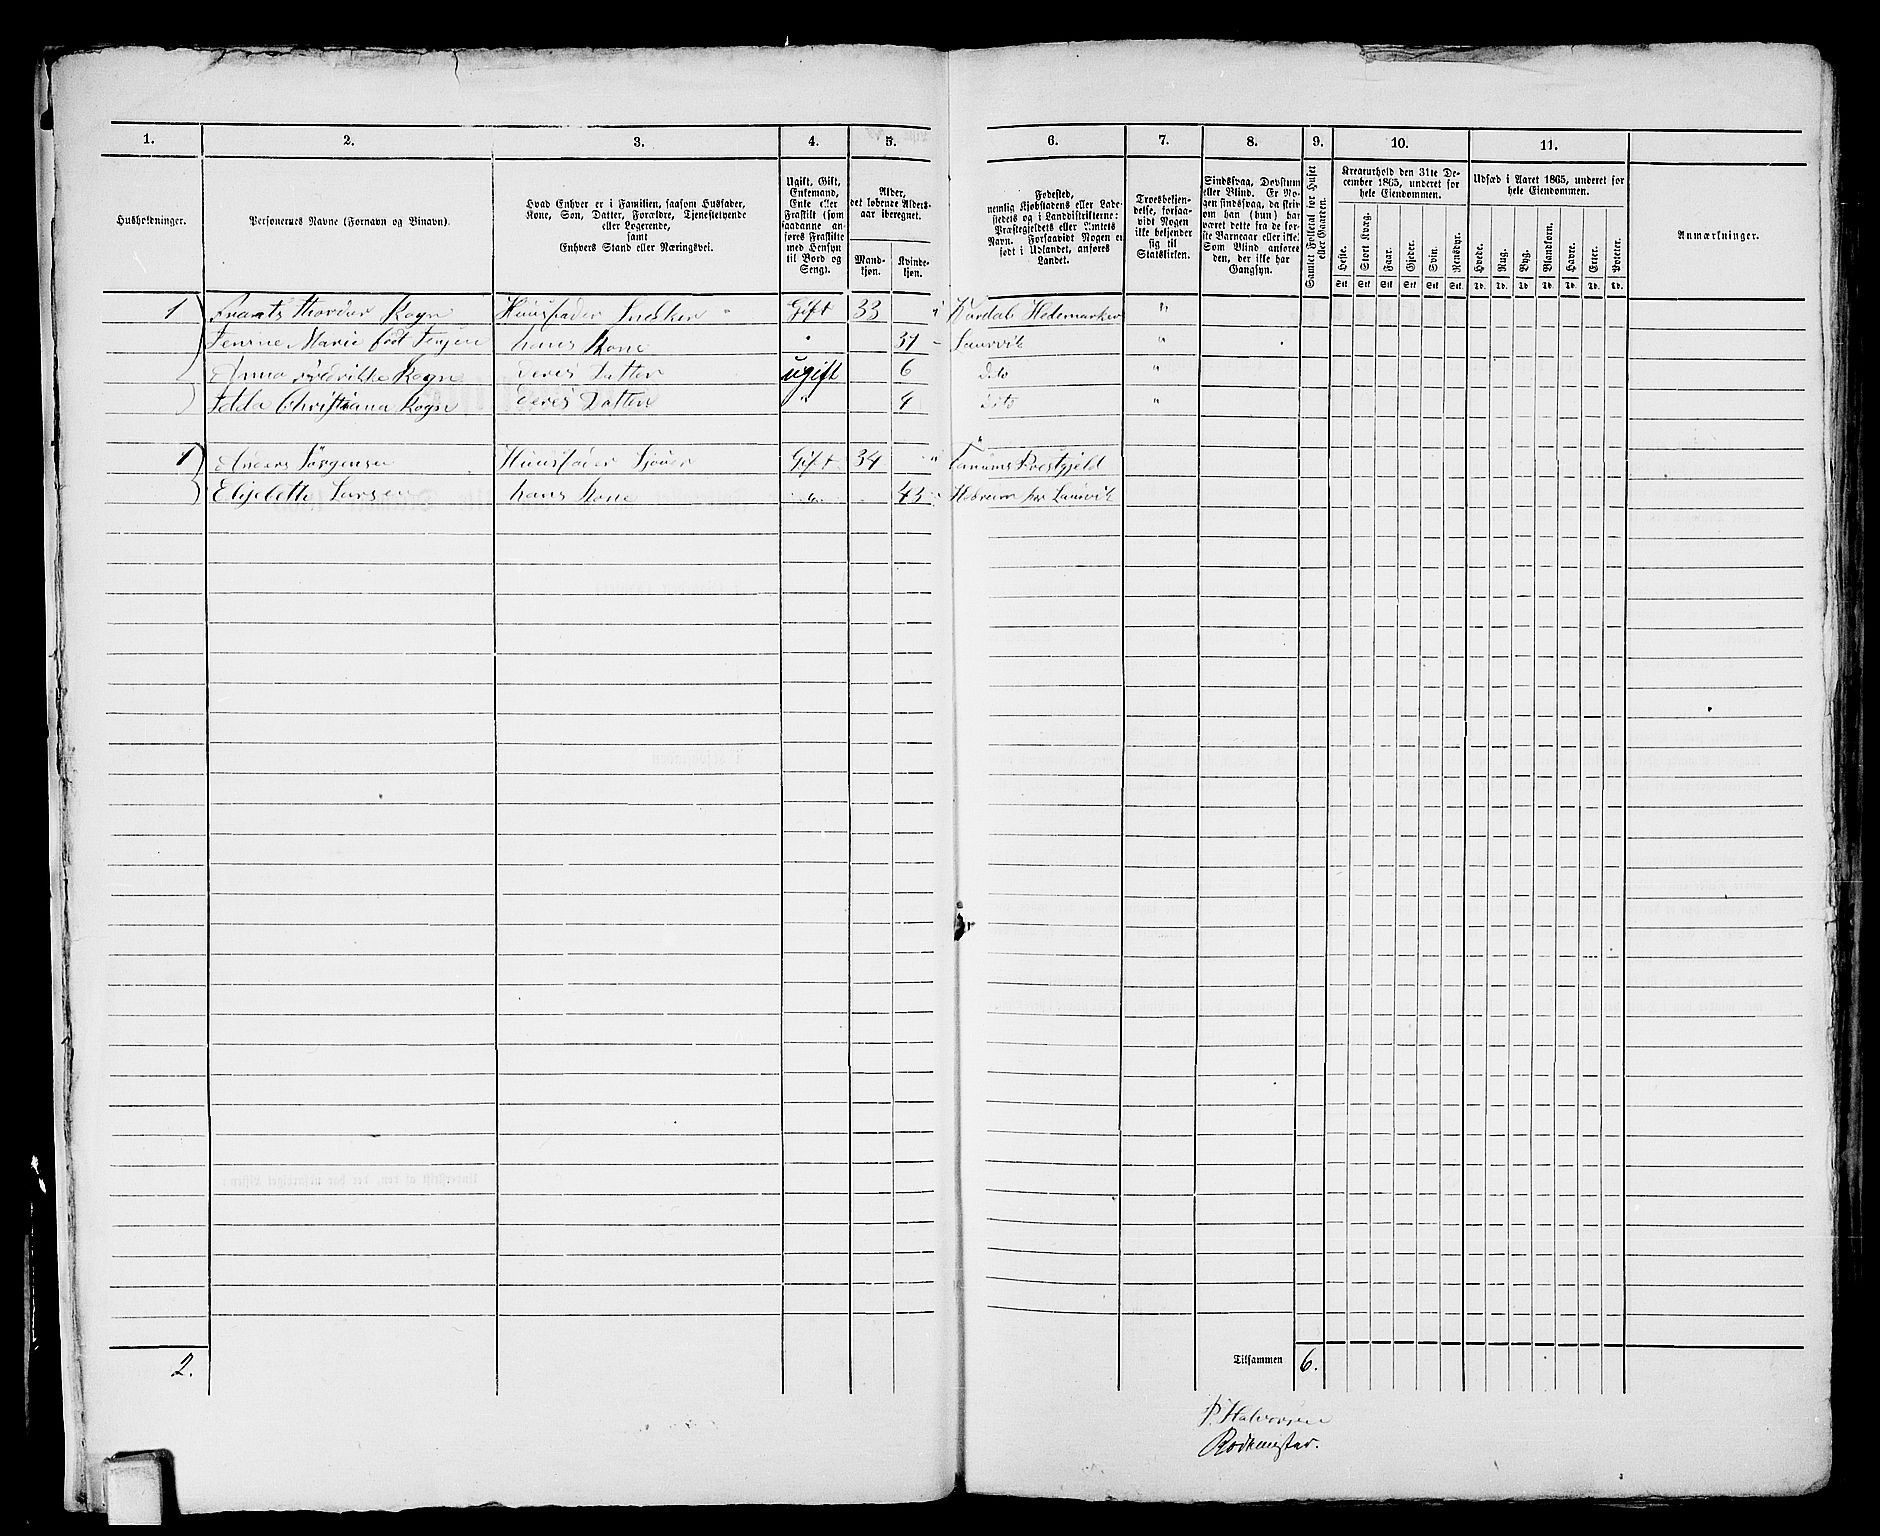 1. 2. 3. 4. 5. 6. 7. 8. 9. 10. 11.
Husholdninger.
Personernes Navne (Fornavn og Binavn).
Hvad Enhver er i Familien, saasom Husfader,
Kone, Søn, Datter, Forældre, Tjenestetyende
eller Logerende,
samt
Enhvers Stand eller Næringsvei.
Ugift, Gift,
Enkemand,
Enke eller
Fraskilt (som
saadanne an-
føres Fraskilte
med Hensyn
til Bord og
Seng).
Alder,
det løbende Alders-
aar iberegnet.
Mand-
kjøn.
Kvinde-
kjøn.
Fødested,
nemlig Kjøbstadens eller Lade-
stedets og i Landdistrikterne:
Præstegjeldets eller Amtets
Navn. Forsaavidt Nogen er
født i Udlandet, anføres
Landet.
Troesbekjen-
delse, forsaa-
vidt Nogen
ikke bekjender
sig til
Statskirken.
Sindssvag, Døvstum
eller Blind. Er No-
gen sindssvag, da skriv
om han (hun) har
været dette fra de før-
ste Barneaar eller ikke.
Som Blind opføres
den, der ikke har
Gangsyn.
Samlet Folketal for Huset
eller Gaarden.
Kreaturhold den 31te De-
cember 1865, underet for
hele Eiendommen.
Heste. Stort Kvæg. Faar. Gjeder. Svin. Rensdyr.
Stk. Stk. Stk. Stk. Stk. Stk.
Udsæd i Aaret 1865, underet for
hele Eiendommen.
Hvede. Rug. Byg. Blandkorn. Havre. Erter. Poteter.
Td. Td. Td. Td. Td. Td. Td.
Anmærkninger.
1 Thordur Rogn Huusfader Snedker Gift 33 " Hedemarken "
Marie født hans Kone " 37 Laurvik "
Anna Rogn Deres Datter ugift 6 dito "
Christiana Rogn Deres Datter " 4 dito "
1 Anders Jørgensen Huusfader Gift 34 " Tanums Prestgjeld
Larsen hans Kone 43 Laurvik
2. Tilsammen 6.
P. Halvorsen
Rodemester.